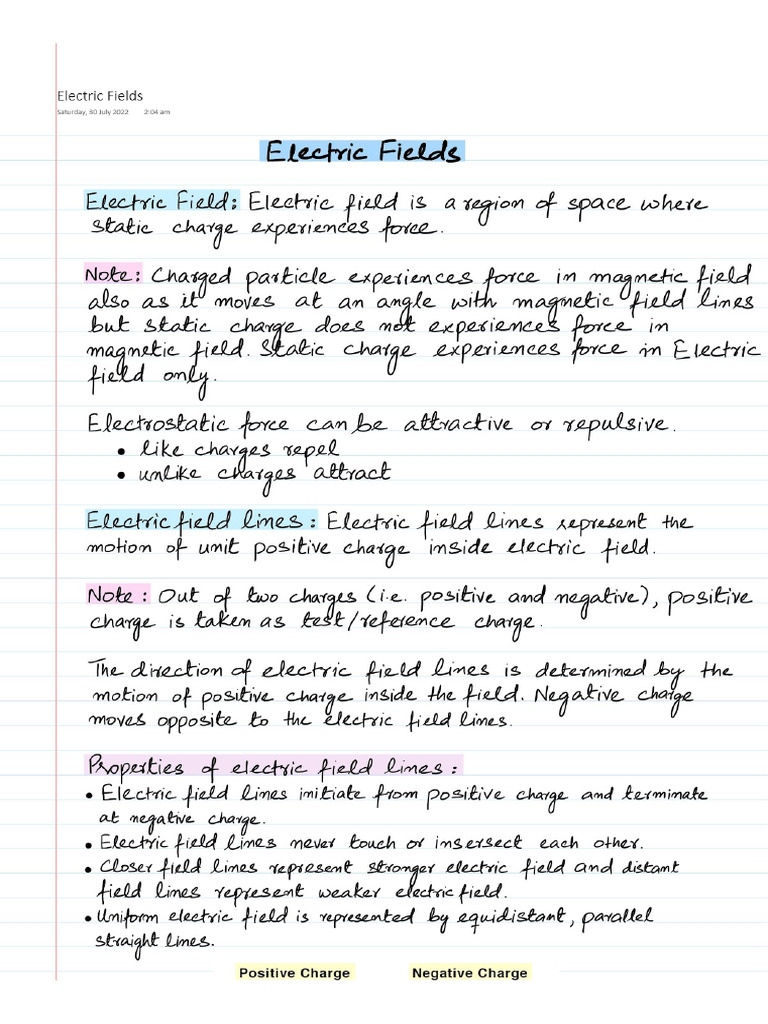 Electric Fields
Saturday, 30 July 2022 2:04 am
Electric Fields
Electric Field: Electric field is a region of space where
static charge experiences force.
Note: Charged particle experiences force in magnetic field
also as it moves at an angle with magnetic field lines
but static charge does not experiences force in
magnetic field. Static charge experiences force in Electric
field only.
Electrostatic force can be attractive or repulsive.
• like charges repel
• unlike charges attract
Electric field lines: Electric field lines represent the
motion of unit positive charge inside electric field.
Note: Out of two charges (i.e. positive and negative), positive
charge is taken as test/reference charge.
The direction of electric field lines is determined by the
motion of positive charge inside the field. Negative charge
moves opposite to the electric field lines.
Properties of electric field lines:
• Electric field lines initiate from positive charge and terminate
at negative charge.
• Electric field lines never touch or insersect each other.
• Closer field lines represent stronger electric field and distant
field lines represent weaker electric field.
• Uniform electric field is represented by equidistant, parallel
straight lines.
Positive Charge Negative Charge